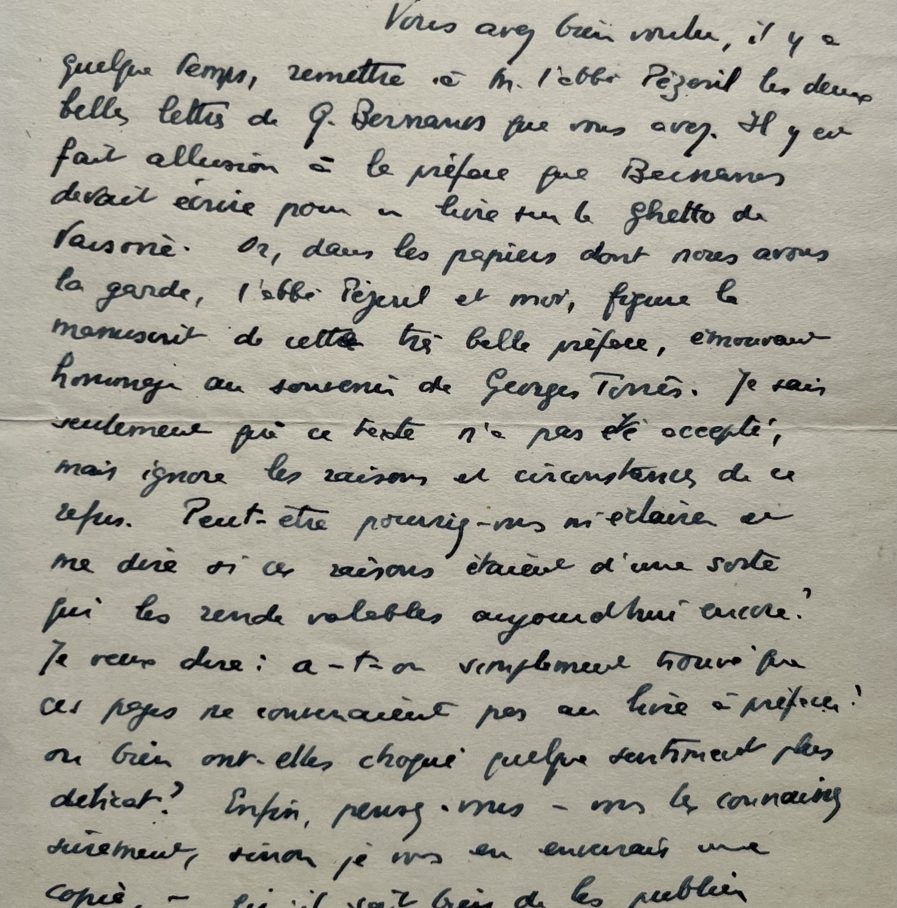 Vous avez bien voulu, il y a
quelque temps, remettre à M. l'abbé Pézeril les deux
belles lettres de G. Bernanos que vous avez. Il y est
fait allusion à la préface que Bernanos
devait écrire pour un livre sur le Ghetto de
Varsovie. Or, dans les papiers dont nous avons
la garde, l'abbé Pézeril et moi, figure le
manuscrit de cette très belle préface, émouvant
hommage au souvenir de Georges Torrès. Je sais
seulement que ce texte n'a pas été accepté,
mais ignore les raisons et circonstances de ce
refus. Peut-être pourriez-vous m'éclairer et
me dire si ces raisons étaient d'une sorte
qui les rende valables aujourd'hui encore?
Je veux dire : a-t-on simplement trouvé que
ces pages ne convenaient pas au livre à préfacer?
ou bien ont-elles choqué quelque sentiment plus
délicat? Enfin, pensez-vous – vous les connaissez
sûrement, sinon je vous en enverrais une
copie, – qu'il soit bien de les publier